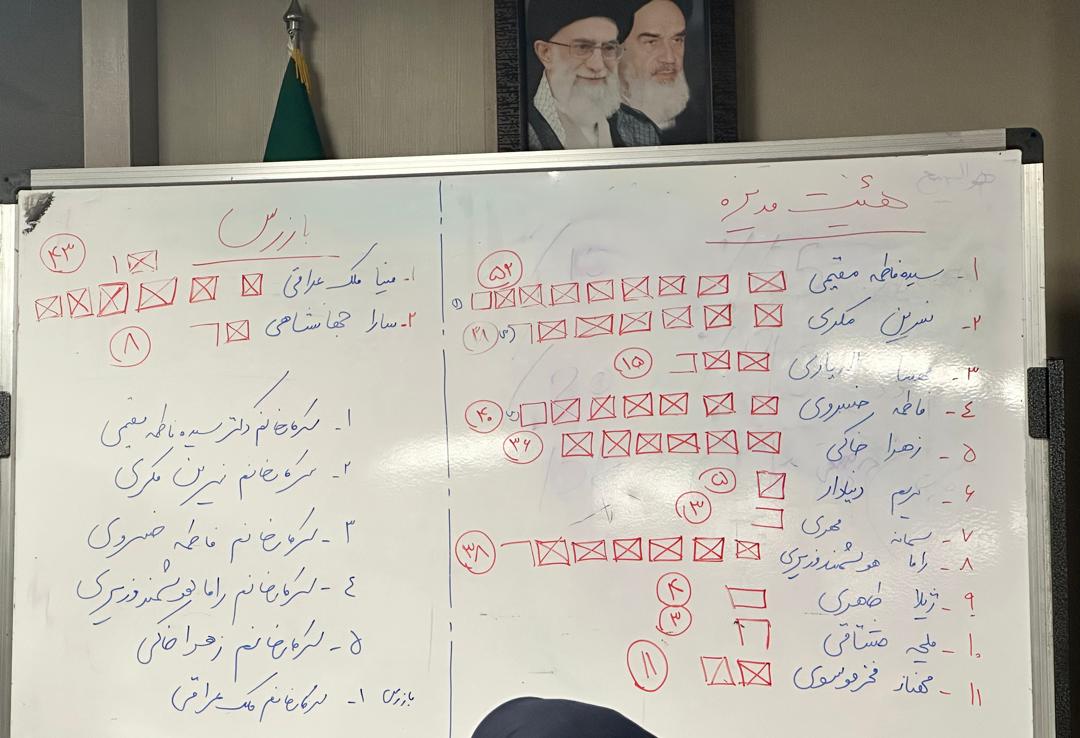 هیئت مدیره
۱- سیده فاطمه مقیمی ۵۲
۲- نسرین مکری ۳۱
۳- ۱۵
۴- فاطمه خسروی ۴۰
۵- زهرا خاکی ۳۶
۶- مریم دنیادار ۵
۷- سمانه مهری ۳
۸- راما هوشمند وزیری ۳۸
۹- ژیلا طاهری ۴
۱۰- ملیحه ۳
۱۱- مهناز فخرموسوی ۱۱
بازرس
۱- مینا ملک عراقی ۴۳
۲- سارا جهانشاهی ۸
۱- سرکار خانم دکتر سیده فاطمه مقیمی
۲- سرکار خانم نسرین مکری
۳- سرکار خانم فاطمه خسروی
۴- سرکار خانم راما هوشمند وزیری
۵- سرکار خانم زهرا خاکی
بازرس ۱- سرکار خانم ملک عراقی